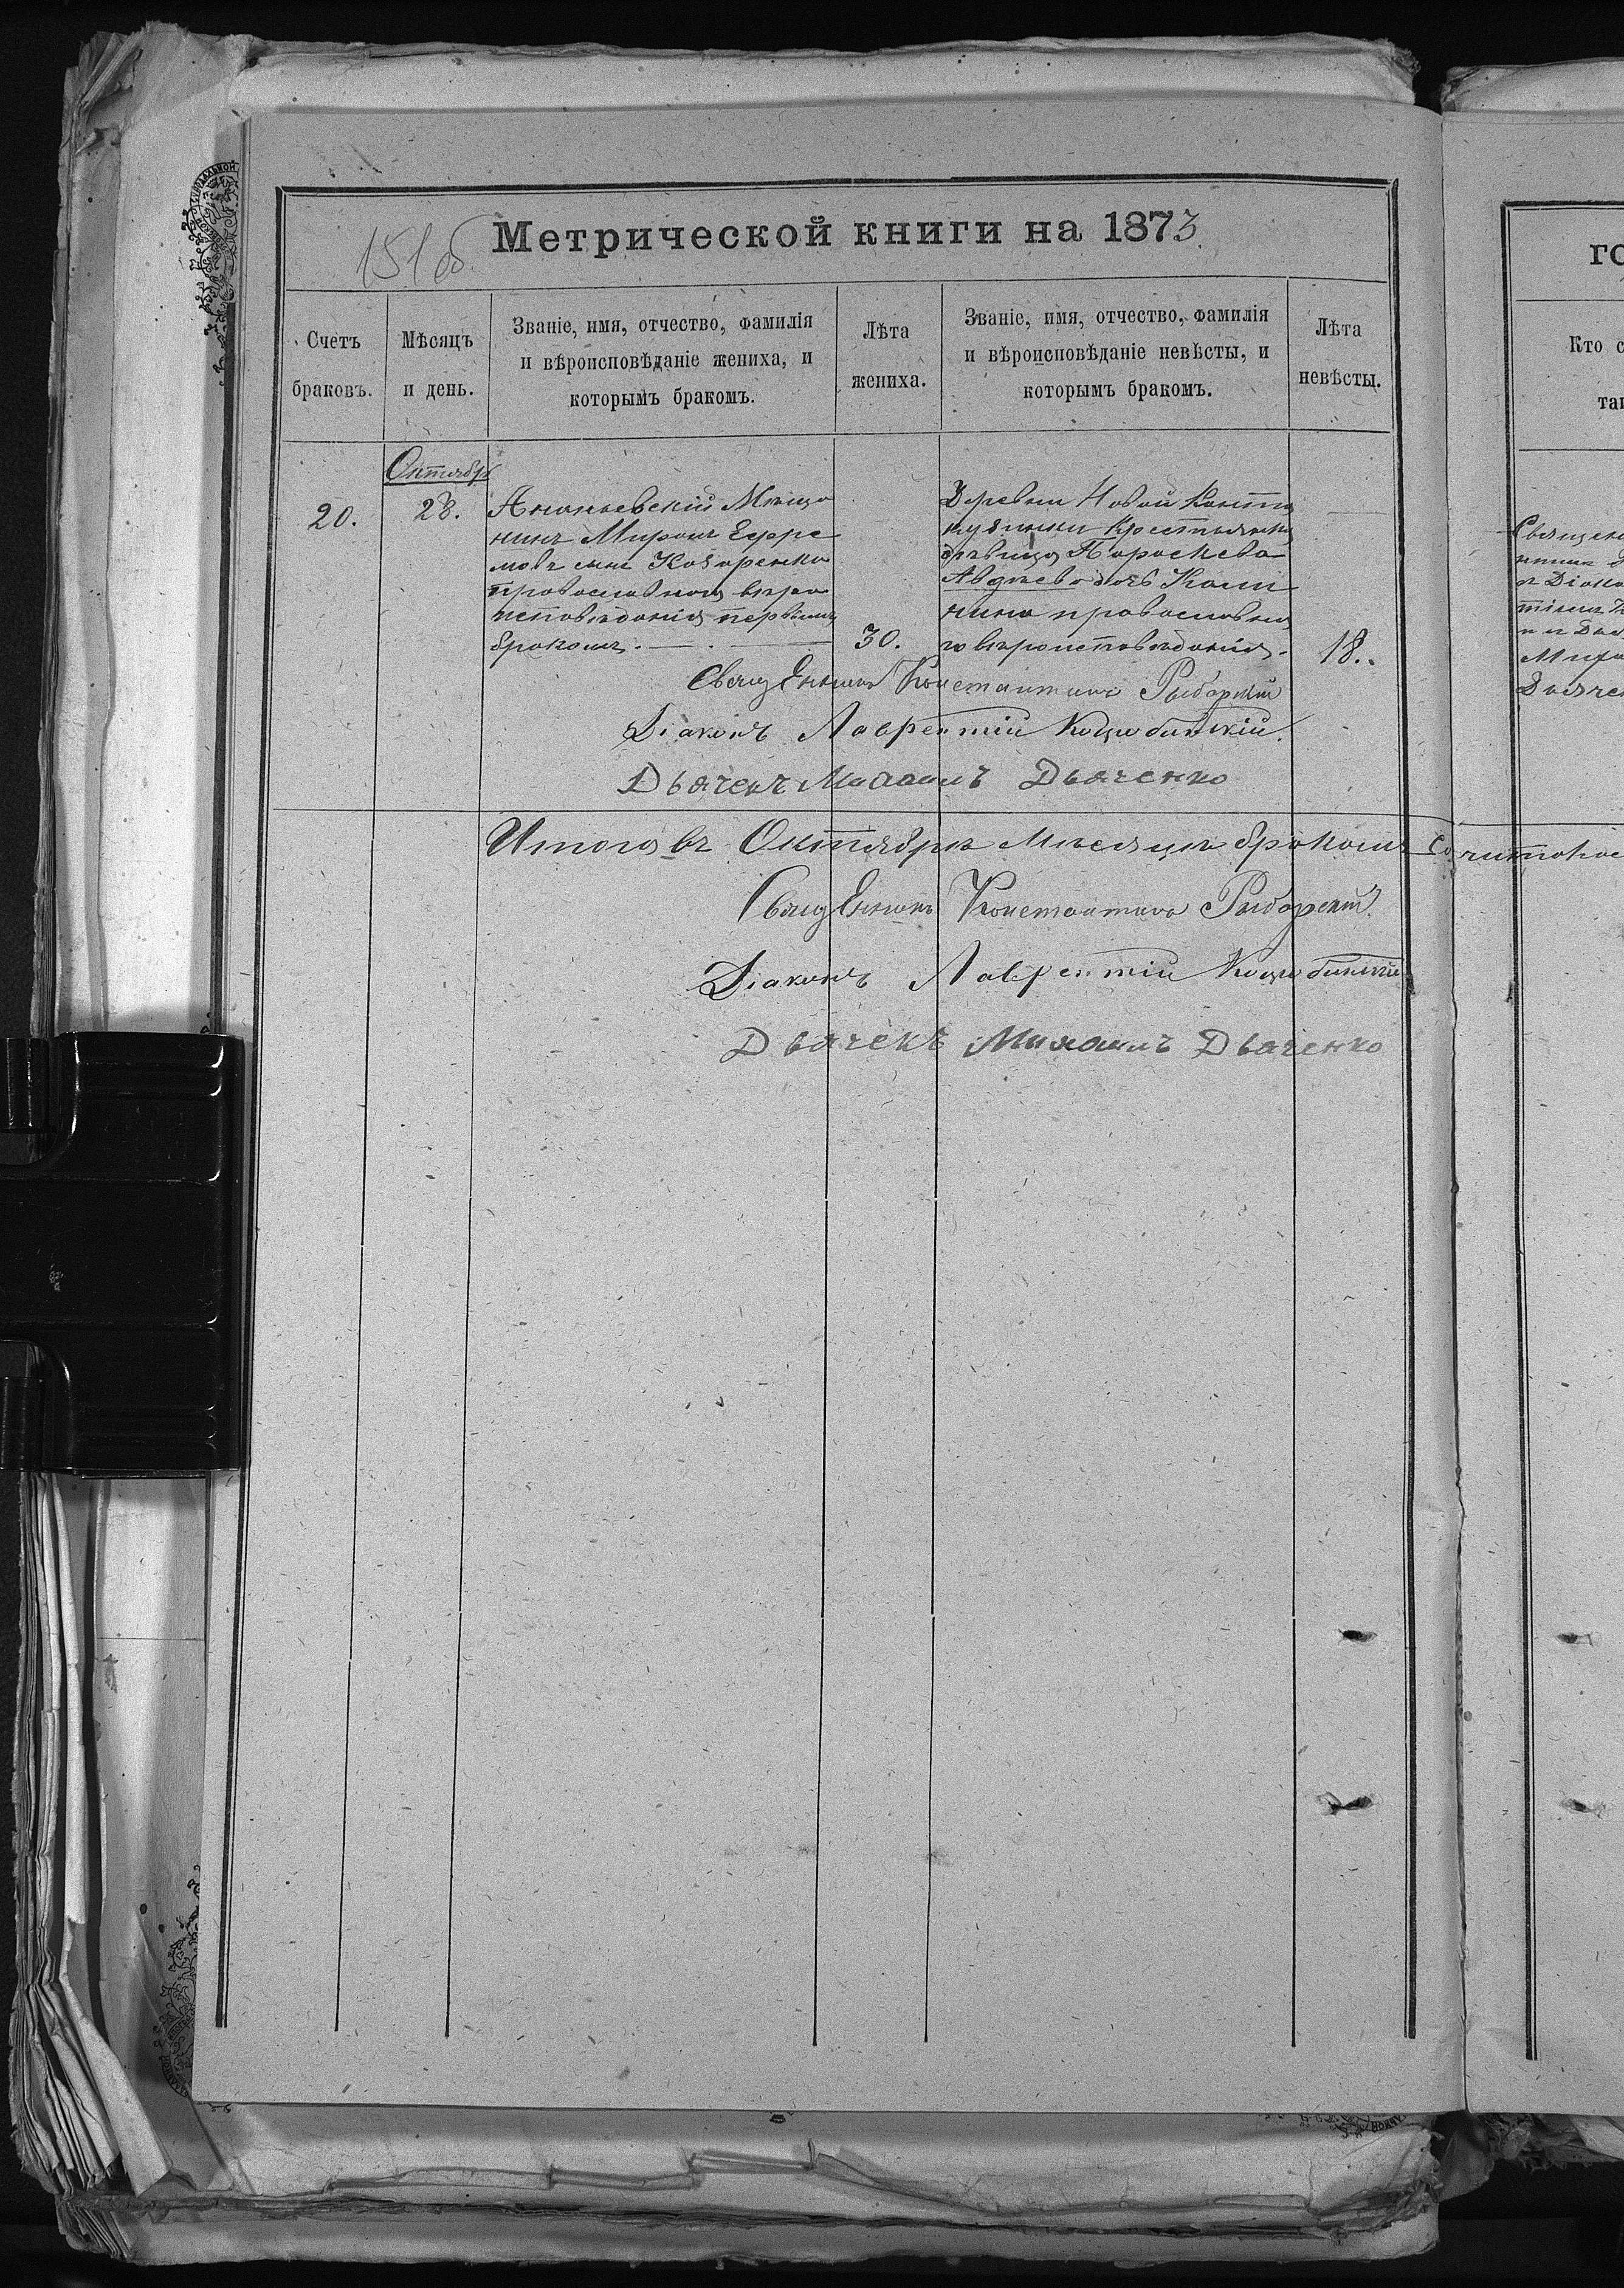 151 об.
Метрической книги на 1873.
Счетъ браковъ.
Мѣсяцъ и день.
Званіе, имя, отчество, фамилія
и вѣроисповѣданіе жениха, и
которымъ бракомъ.
Лѣта жениха.
Званіе, имя, отчество, фамилія
и вѣроисповѣданіе невѣсты, и
которымъ бракомъ.
Лѣта невѣсты.
Октябр
20.
28.
Ананьевскій Мѣща
нинъ Миронъ Ефре
мовъ сынъ Козаренко
православнаго вѣро
исповѣданія первымъ
бракомъ.
30.
Деревни Новой
крестьянка
дѣвица Параскева
Авдѣева дочь Кали
нина православна
го вѣроисповѣданія.
18.
Священникъ Константинъ
Діаконъ Лаврентій
Дьячекъ Михаилъ Дьяченко
Итого въ Октябрѣ мѣсяцѣ бракомъ сочитаноас
Священникъ Константинъ
Діаконъ Лаврентій
Дьячекъ Михаилъ Дьяченко
го
Кто с
та
Священ